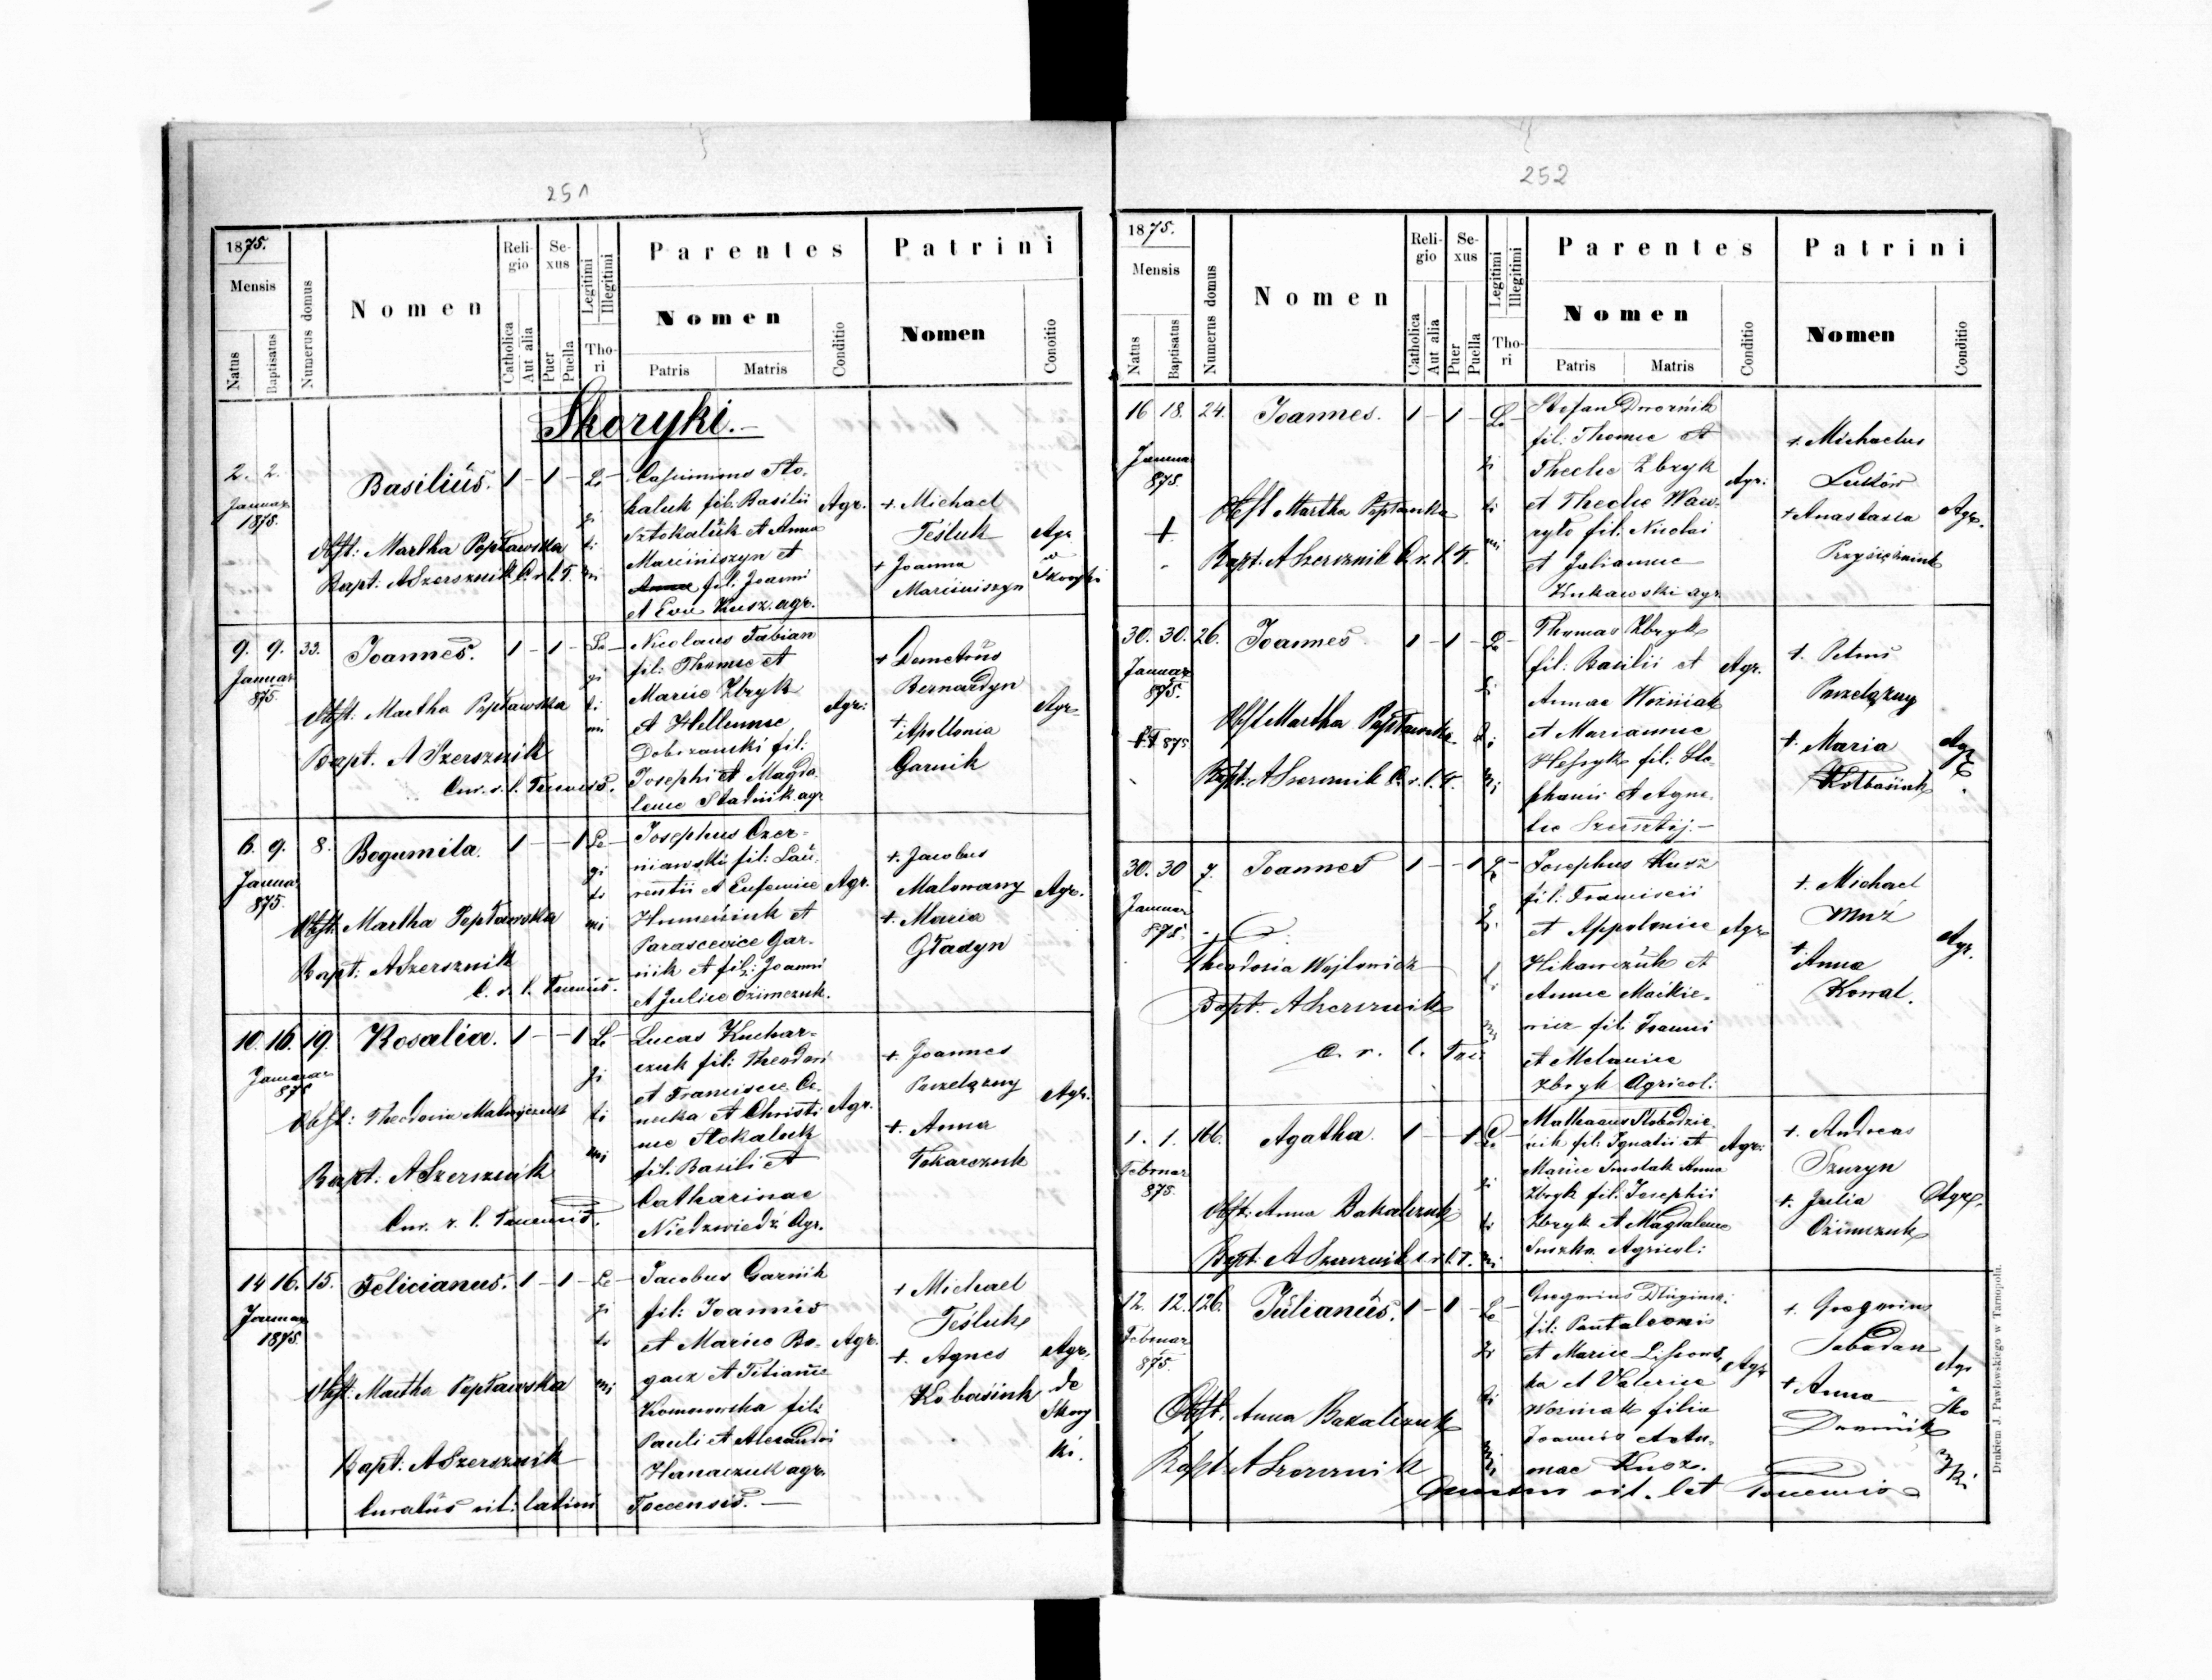 251
1875.
Mensis
Natus
Baptisatus
Numerus domus
Nomen
Religio
Catholica
Aut alia
Sexus
Puer
Puella
Legitimi
Illegitimi
Thori
Parentes
Nomen
Patris
Matris
Conditio
Patrini
Nomen
Conditio
Skoryki.
2. 2.
Januar
1875.
Basilius. 1 - 1 - Le
gi
ti
mi
Obst: Martha Popławska
Bapt: A Szersznik C. r. l. T.
Casimirus Sto-
kaluk fil. Basilii
Sztokaluk et Anna
Marciniszyn et
fil. Joanni
et Eva Kusz. agr.
Agr.
+ Michael
Teśluk
+ Joanna
Marciniszyn
Agr
Skoryki
9. 9. 33.
Januar
875.
Joannes. 1 - 1 - Le
gi
ti
mi
Obst: Martha Popławska
Bapt. A Szersznik
Cur. r. l. Tarnoruś.
Nicolaus Fabian
fil: Thomae et
Mariae Zbryk
et Hellenae
Dobrzanski fil:
Josephi et Magda-
lenae Stadnik agr
Agr:
+ Demetrius
Bernardyn
+ Apollonia
Garnik
Agr
6. 9. 8.
Januar
875.
Bogumila. 1 - - 1 Le
gi
ti
mi
Obst: Martha Popławska
Bapt: A Szersznik
Josephus Czer-
niawski fil: Lau-
rentii et Eufemiae
Humeniuk et
Parascevice Gar-
nik et fil: Joanni
et Juliae Ozimczuk.
Agr.
+ Jacobus
Malowany
+ Maria
Gładyn
Agr.
10. 16. 19.
Januar
875
Rosalia. 1 - - 1 Le
gi
ti
mi
Obst: Theodosia
Bapt: A Szersznik
Lucas Kuchar-
czuk fil: Theodori
et Franciscae
et Christi-
nae Stokaluk
fil. Basili et
Catharinae
Niedzwiedź Agr.
Agr.
+ Joannes
Parzelązny
+ Anna
Tokarczuk
Agr.
14 16. 15.
Januar
1875.
Felicianus. 1 - 1 - Le
gi
ti
mi
Obst: Martha Popławska
Bapt: A Szersznik
Curatus rit: latini
Jacobus Garnik
fil: Joannis
et Mariae Bo-
gacz et Titianae
Komarowska fil:
Pauli et Alexandri
Hanaczuk agr.
Toccensis. —
Agr.
+ Michael
Teśluk
+ Agnes
Kobasiuk
Agr.
de
Skory
ki.
252
1875.
Mensis
Natus
Baptisatus
Numerus domus
Nomen
Religio
Catholica
Aut alia
Sexus
Puer
Puella
Legitimi
Illegitimi
Thori
Parentes
Nomen
Patris
Matris
Conditio
Patrini
Nomen
Conditio
16 18. 24.
Januar
875.
+
Joannes. 1 - 1 - Le
gi
ti
mi
Obst Martha Popławska
Bapt. A Szersznik C. r. l. T.
Stefan Dwornik
fil: Thomae et
Theclae Zbryk
et Theclae Waw-
ryło fil: Nicolai
et Julianae
Kukawski agr
Agr:
+ Michaelus
Luków
+ Anastasia
Przysiężniuk
Agr.
30. 30. 26.
Januar
875.
Joannes 1 - 1 - Le
Obst Martha Popławska
Bapt: A Szersznik C. r. l. T.
Thomas Zbryk
fil: Basilii et
Annae Woźniak
et Mariannae
fil: Ste-
phanii et Agne-
Agr.
+ Petrus
Parzelązny
+ Maria
Kołbasiuk
Agr
30. 30 7.
Januar
875.
Joannes 1 - - 1 Le
Theodosia Wojtowicz
Bapt. A Szersznik
C. r. l. Tar.
Josephus Kusz
fil: Francisci
et Appoloniae
Hikawczuk et
Annae Maikie-
wicz fil: Joanni
et Melaniae
Zbryk Agricol:
Agr
+ Michael
Muź
+ Anna
Kowal.
Agr.
1. 1. 166.
Februar
875.
Agatha. 1 - - 1 Le
gi
ti
mi
Obst: Anna Bakalczuk
Bapt: A Szersznik C. r. l. T.
Mathaeus Słobodzie-
nik fil: Ignatii et
Mariae Smolak Anna
Zbryk fil: Josephii
Zbryk et Magdalenae
Suszka Agricol:
Agr:
+ Andreas
Szuryn
+ Julia
Ozimczuk
Agr.
12. 12. 126.
Februar
875.
Julianus. 1 - 1 - Le
gi
ti
mi
Obst. Anna Bakalczuk
Bapt A Szersznik
Gregorius
fil: Pantaleonis
et Mariae Lissows-
ka et Valeriae
Woźniak filia
Joannis et An-
nae Kusz.
Curatus rit. lat
Agr
+ Gregorius
Sabadan
+ Anna
Dwornik
Agr
Sko
ry
ki
Drukiem J. Pawłowskiego w Tarnopolu.